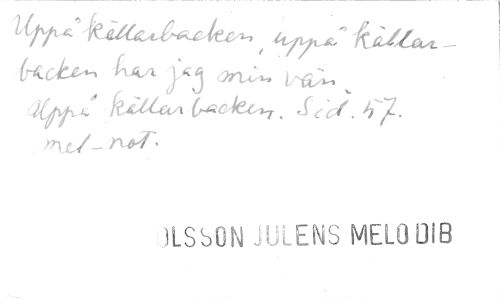 Uppå källarbacken, uppå källar-
backen har jag min vän.
Uppå källarbacken. Sid. 57.
mel-not.
OLSSON JULENS MELODIB